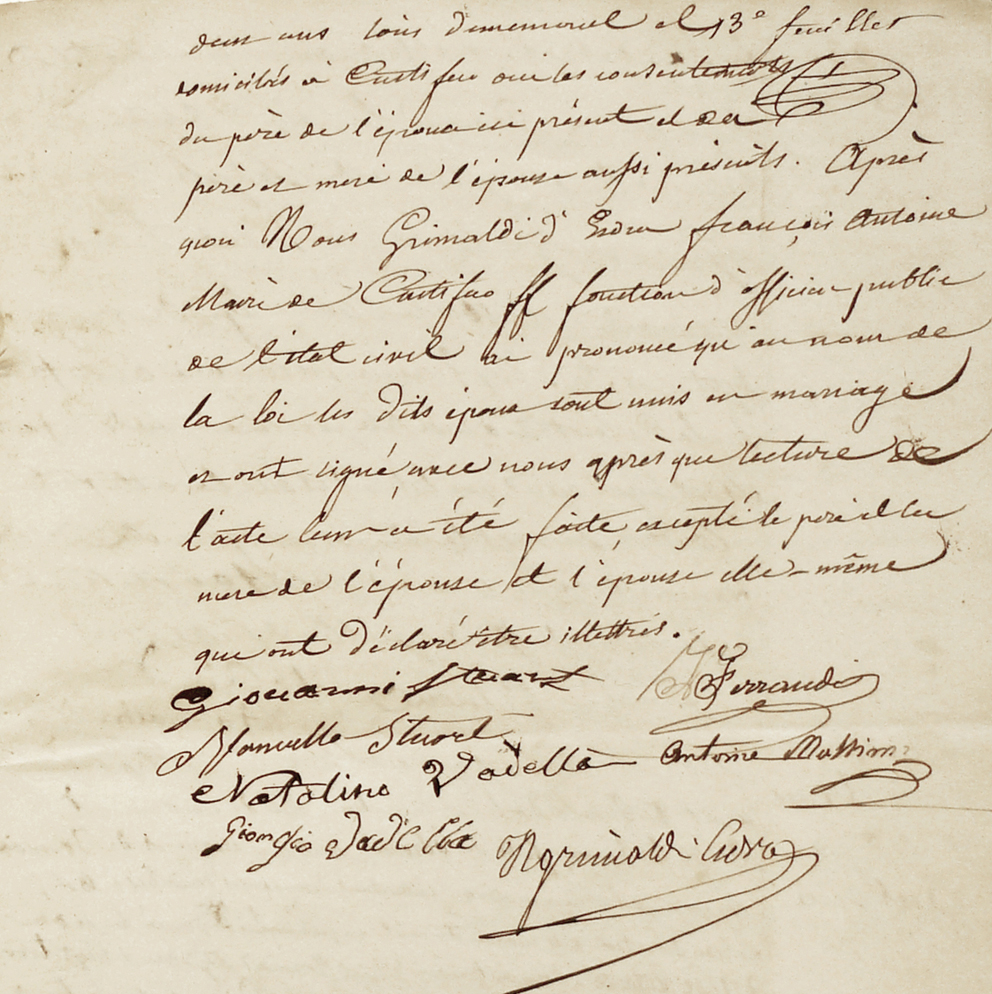 deux ans tous demeurent et 13e feuillet
domiciliés à Castifao ouï les consentements
du père de l'époux ici présent et de
père et mere de l'épouse aussi présents. Après
quoi Nous Grimaldi d' Esdra françois Antoine
Maire de Castifao ff fonction d'officier public
de l'état civil ai prononcé qu'au nom de
la loi les dits époux sont unis en mariage
et ont signé avec nous après que lecture de
l'acte leur a été faite, excepté le père et la
mere de l'épouse et l'épouse elle-même
qui ont déclaré être illettrés.
Giovanni Stuart Ferrandi
Stuart Antoine
Natalino Vadella
Giorgio Vadella Grimaldi Esdra